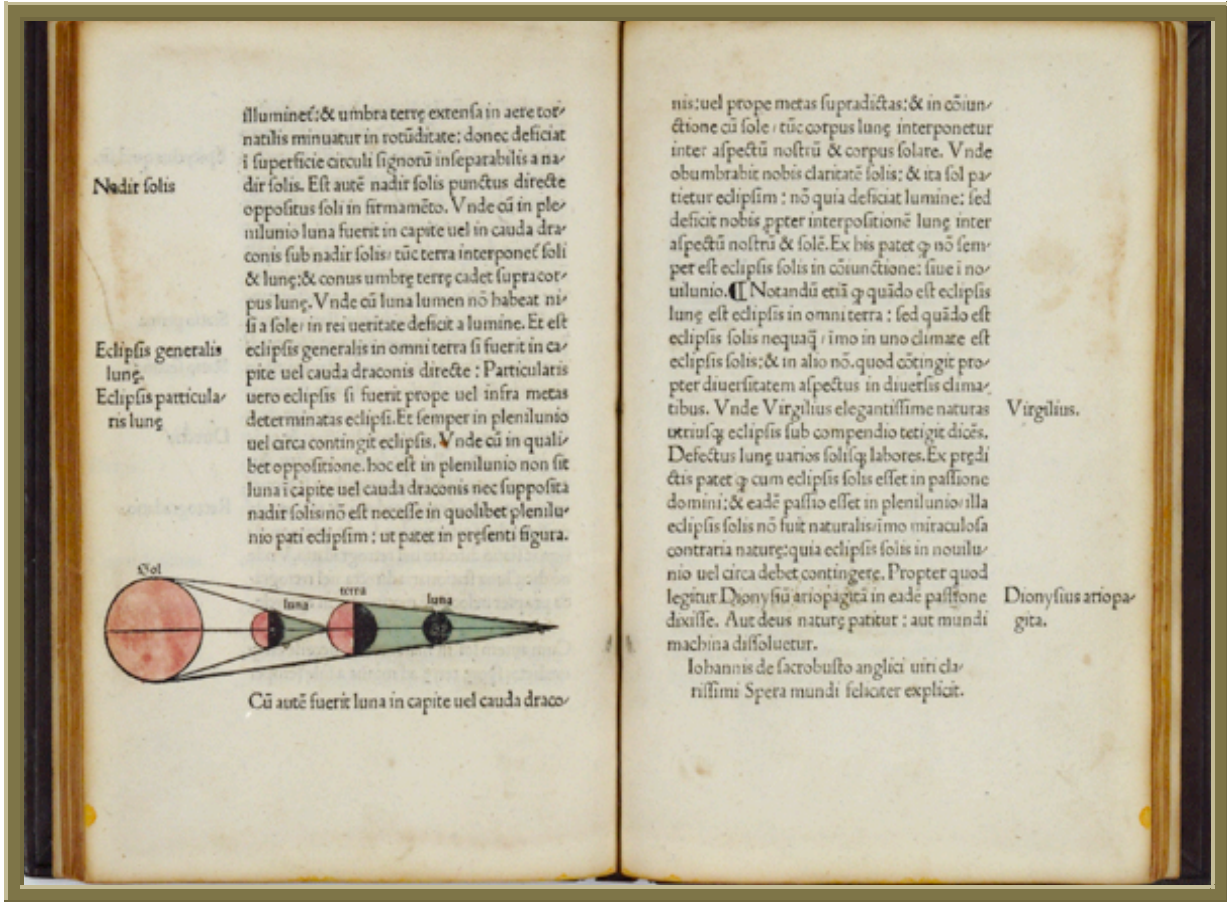 illumineť:& umbra terrę extensa in aere tor-
natilis minuatur in rotūditate: donec deficiat
ī superficie circuli signorū inseparabilis a na-
Nadir solis
dir solis. Est autē nadir solis punctus directe
oppositus soli in firmamēto. Vnde cū in ple-
nilunio luna fuerit in capite uel in cauda dra-
conis sub nadir solis: tūc terra interponeť soli
& lunę:& conus umbrę terrę cadet supra cor-
pus lunę. Vnde cū luna lumen nō habeat ni-
si a sole: in rei ueritate deficit a lumine. Et est
Eclipsis generalis
lunę.
eclipsis generalis in omni terra si fuerit in ca-
pite uel cauda draconis directe: Particularis
Eclipsis particula-
ris lunę
uero eclipsis si fuerit prope uel infra metas
determinatas eclipsi. Et semper in plenilunio
uel circa contingit eclipsis. Vnde cū in quali-
bet oppositione. hoc est in plenilunio non sit
luna ī capite uel cauda draconis nec supposita
nadir solis: nō est necesse in quolibet plenilu-
nio pati eclipsim: ut patet in pręsenti figura.
Sol
luna
terra
luna
Cū autē fuerit luna in capite uel cauda draco-
nis: uel prope metas supradictas: & in cōiun-
ctione cū sole: tūc corpus lunę interponetur
inter aspectū nostrū & corpus solare. Vnde
obumbrabit nobis claritatē solis: & ita sol pa-
tietur eclipsim: nō quia deficiat lumine: sed
deficit nobis ꝓpter interpositionē lunę inter
aspectū nostrū & solē. Ex his patet ꝙ nō sem-
per est eclipsis solis in cōiunctione: siue ī no-
uilunio. ¶ Notandū etiā ꝙ quādo est eclipsis
lunę est eclipsis in omni terra: sed quādo est
eclipsis solis nequaq̄: imo in uno climate est
eclipsis solis: & in alio nō. quod cōtingit pro-
pter diuersitatem aspectus in diuersis clima-
tibus. Vnde Virgilius elegantissime naturas
Virgilius.
utriusq; eclipsis sub compendio tetigit dicēs.
Defectus lunę uarios solisq; labores. Ex prędi
ctis patet ꝙ cum eclipsis solis esset in passione
domini: & eadē passio esset in plenilunio: illa
eclipsis solis nō fuit naturalis: imo miraculosa
contraria naturę: quia eclipsis solis in nouilu-
nio uel circa debet contingere. Propter quod
legitur Dionysiū ariopagitā in eadē passione
Dionysius ariopa-
gita.
dixisse. Aut deus naturę patitur: aut mundi
machina dissoluetur.
Iohannis de sacrobusto anglici uiri cla-
rissimi Spera mundi feliciter explicit.